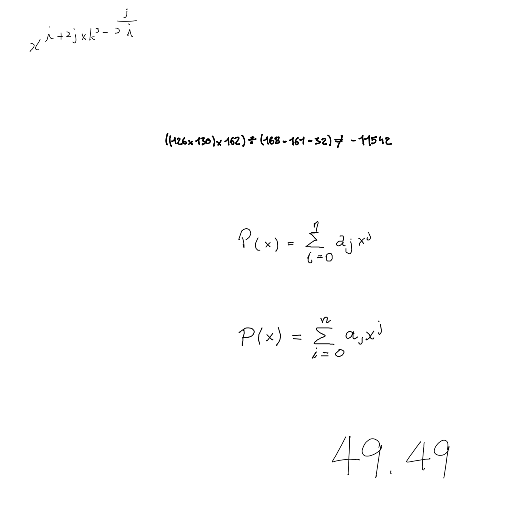 ((126×130)×162)÷(168-161-32)≠-11542
P(x) = \sum_{i=0}^{n} a_j x^j
P(x) = \sum_{i=0}^{n} a_j x^j
49.49